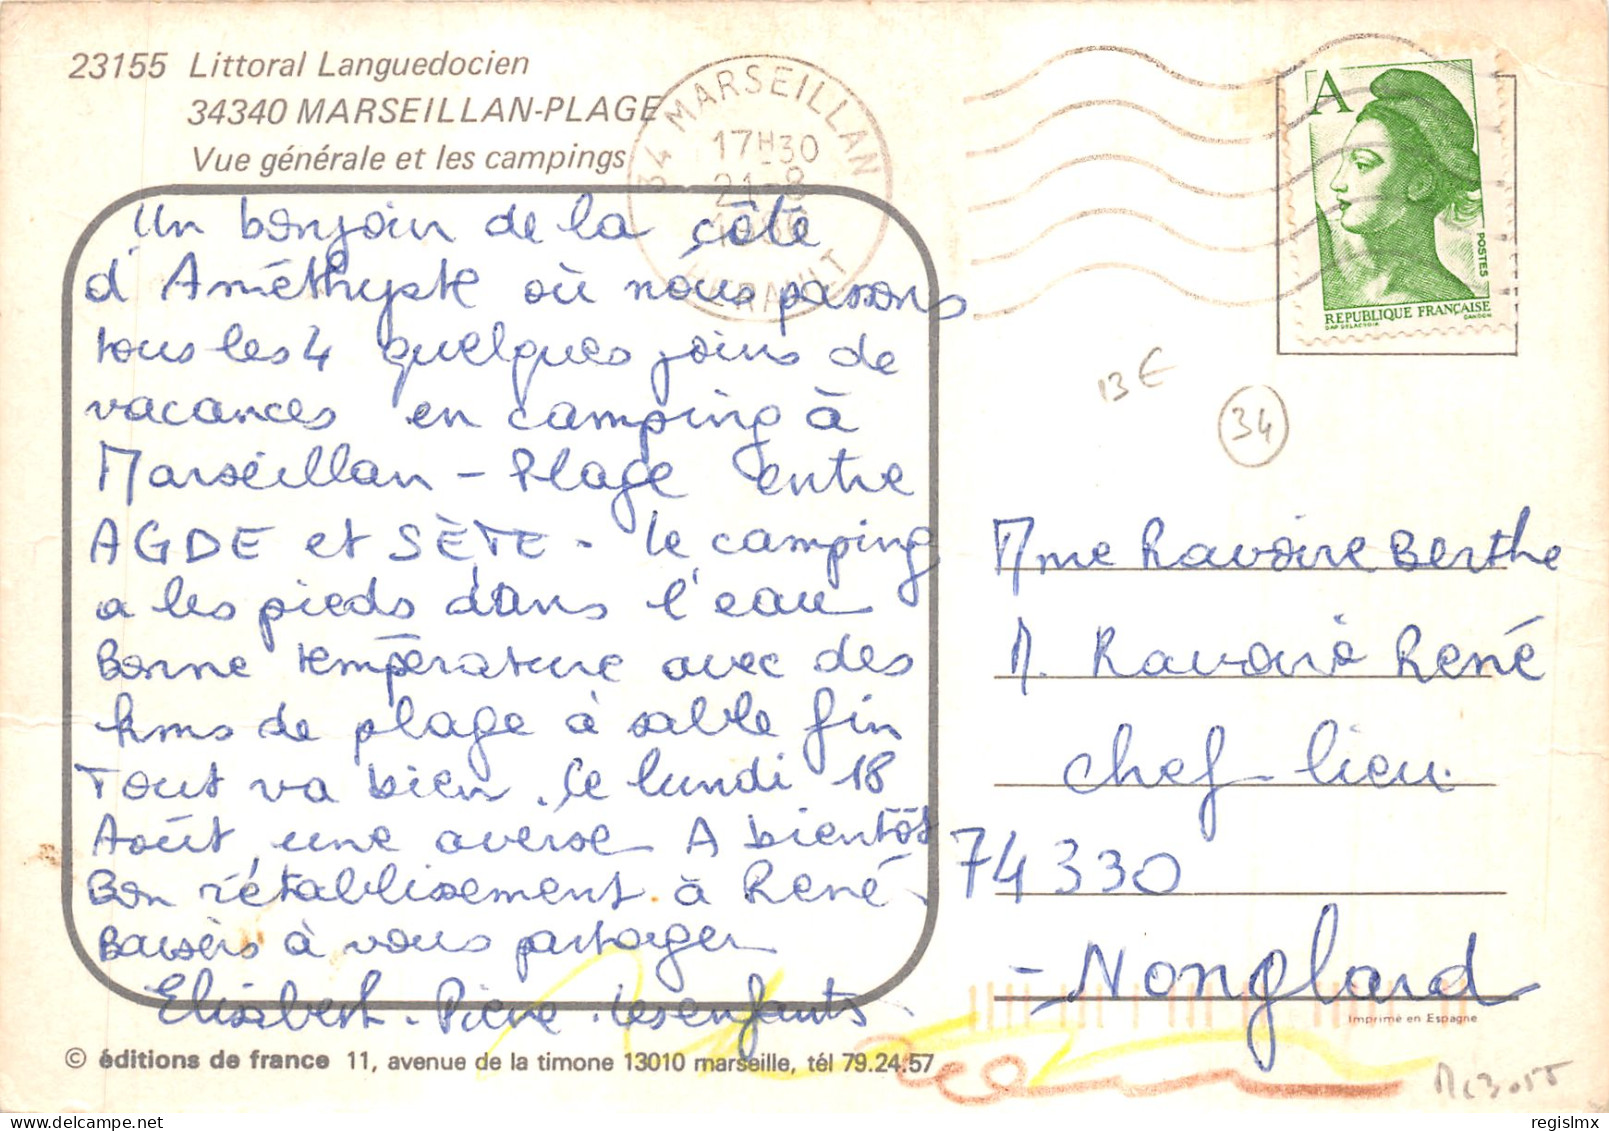 23155 Littoral Languedocien
34340 MARSEILLAN-PLAGE
Vue générale et les campings
34 MARSEILLAN
17H30
21-8
HERAULT
A
POSTES
REPUBLIQUE FRANÇAISE
DAP DELACROIX GANDON
Un bonjour de la côte
d'Améthyste où nous passons
tous les 4 quelques jours de
vacances en camping à
Marseillan-Plage entre
AGDE et SÈTE - le camping
a les pieds dans l'eau
Bonne température avec des
kms de plage à sable fin
Tout va bien. Ce lundi 18
Août une averse A bientôt
Bon rétablissement à René.
Baisers à vous partager
Elisabeth. Pierre. les enfants
13€
34
Mme Ravoire Berthe
M. Ravoire René
Chef-lieu
74330
-Nonglard
Imprimé en Espagne
© éditions de france 11, avenue de la timone 13010 marseille, tél 79.24.57
regislmx